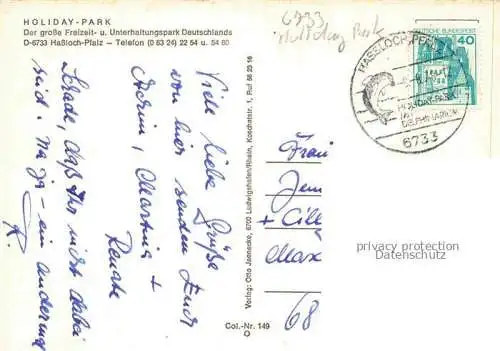 HOLIDAY-PARK
Der große Freizeit- u. Unterhaltungspark Deutschlands
D-6733 Haßloch-Pfalz – Telefon (0 63 24) 22 54 u. 54 80
6733
Holiday Park
HASSLOCH, PFALZ
HOLIDAY-PARK
MIT
DELPHINARIUM
6733
DEUTSCHE BUNDESPOST
40
Viele liebe Grüße
von hier senden Euch
Martina +
Renate
Schade, daß Ihr nicht dabei
seid. Na ja – ein andermal
R.
Verlag: Otto Jaenecke, 6700 Ludwigshafen/Rhein, Knochstr. 1, Ruf 56 25 16
Frau
Jem
+ Cill
Max
68
privacy protection
Datenschutz
Col.-Nr. 149